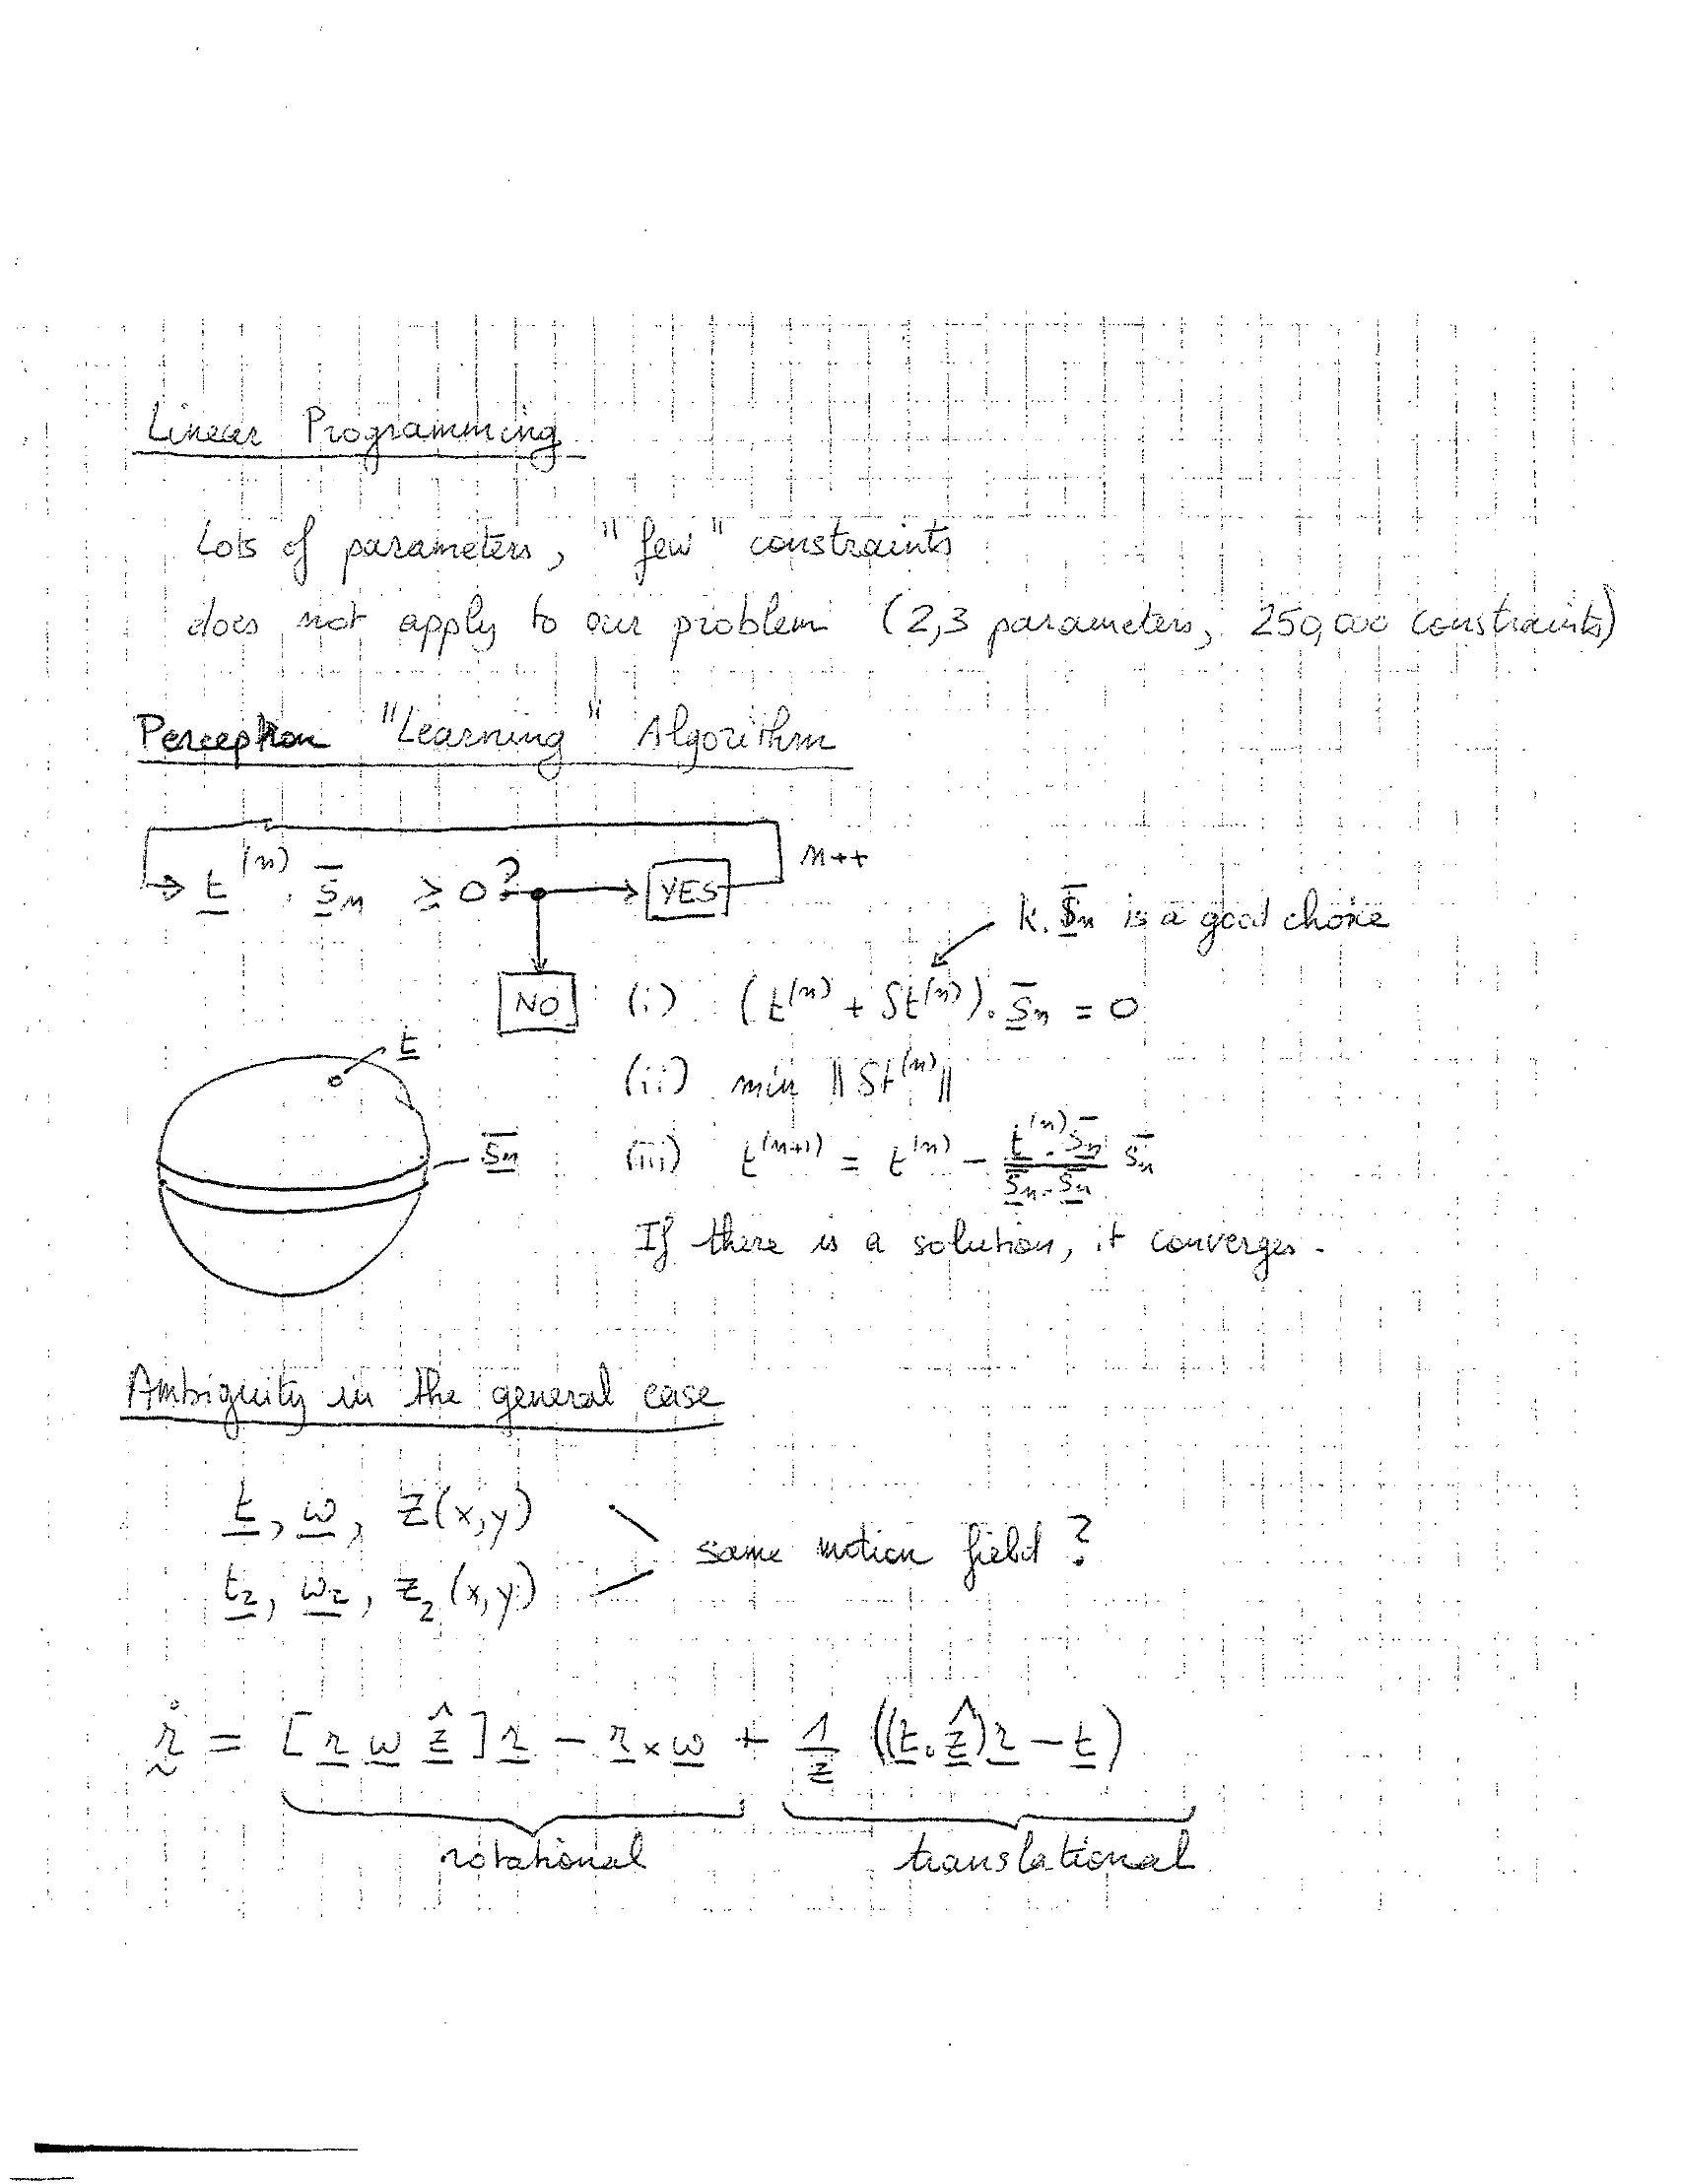 Linear Programming
Lots of parameters, "few" constraints
does not apply to our problem (2,3 parameters, 250,000 constraints)
Perceptron "Learning" Algorithm
n++
→ t^(n) · s̄_n ≥ 0? → YES
k. s̄_n is a good choice
NO (i) (t^(n) + δt^(n)) . s̄_n = 0
t
(ii) min ‖δt^(n)‖
s̄_n
(iii) t^(n+1) = t^(n) − (t^(n) . s̄_n)/(s̄_n . s̄_n) s̄_n
If there is a solution, it converges.
Ambiguity in the general case
t, ω, Z(x,y)
same motion field ?
t₂, ω₂, Z₂(x,y)
ṙ = [r ω ẑ] r − r × ω + 1/Z ((t . ẑ) r − t)
rotational translational